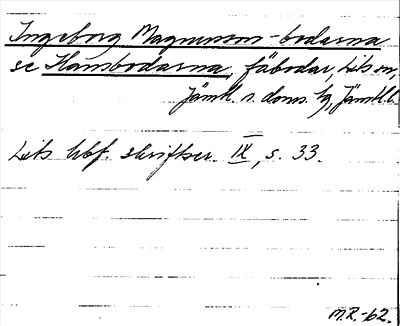 Ingeborg Magnusson-bodarna
se Hansbodarna, fäbodar, Lits sn,
Jämtl. n. doms. tg, Jämtl. l.
Lits hbf. skriftser. IX, s. 33.
M.R.-62.